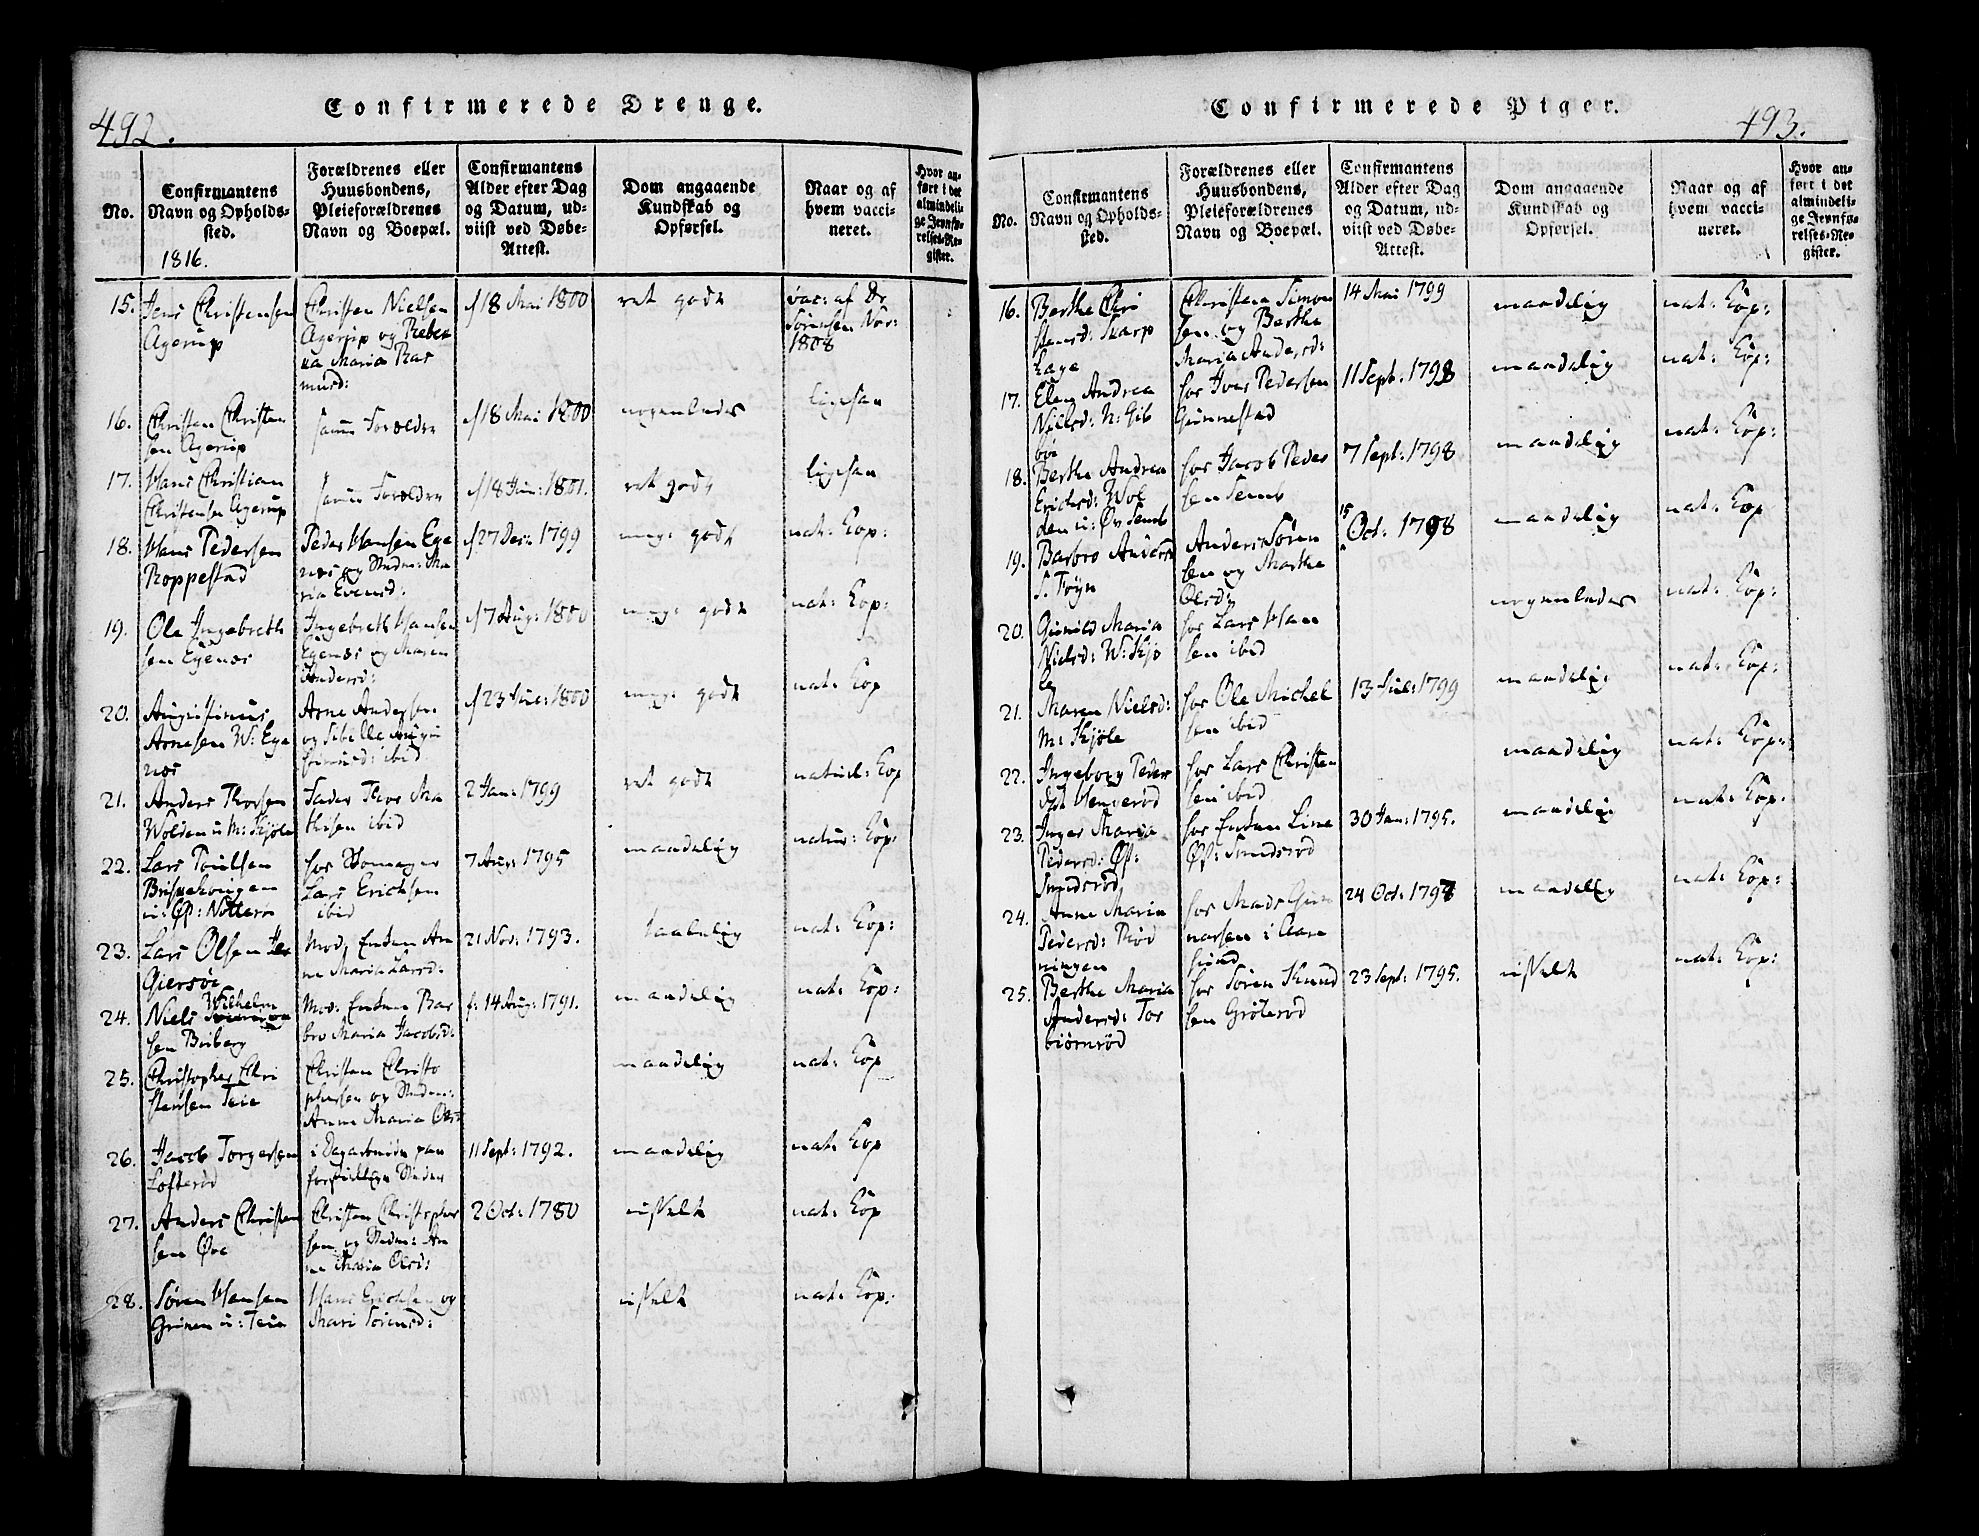 492.
Confirmerede Drenge.
No.
Confirmantens
Navn og Opholds-
sted.
1816.
Forældrenes eller
Huusbondens,
Pleieforældrenes
Navn og Boepæl.
Confirmantens
Alder efter Dag
og Datum, ud-
viist ved Døbe-
Attest.
Dom angaaende
Kundskab og
Opførsel.
Naar og af
hvem vacci-
neret.
Hvor an-
ført i det
almindeli-
ge Jevnfø-
relses-Re-
gister.
15. Jens Christensen
Agerup
Christen Nielsen
Agerup og Rebec
ca Maria Ras
musd:
f 18 Mai 1800
ret godt
vac: af Dr
Sørensen Nov:
1808
16. Christen Christen
sen Agerup
samme Forældre
f 18 Mai 1800
nogenledes
ligesaa
17. Hans Christian
Christensen Agerup
samme Forældre
f 18 Jun: 1801.
ret godt
ligesaa
18. Hans Pedersen
Roppestad
Peder Hansen Ege
næs og Mar
ria Evensd:
f 27 Dec: 1799
meg: godt
nat: Kop:
19. Ole Ingebreth
sen Egenæs
Ingebreth Hansen
Egenæs og Maren
Andersd:
f 7 Aug: 1800
meg: godt
nat: Kop:
20. Augustinus
Arnesen W: Ege
næs
Arne Andersen
og Sibille Augu
ibid
f 23 Jul: 1800
meg: godt
nat: Kop
21. Anders Thorsen
Wolden u: M: Skjøle
Fader Thor Ma
thisen ibid
2 Jan: 1799
ret godt
naturl: Kop
22. Lars Poulsen
u: Øst: Nøtterø
hos
Lars Erichsen
ibid
7 Aug: 1795
maadelig
natur: Kop:
23. Lars Olsen
Giersøe
Mod: Enken An
ne Maria Larsd:
21 Nov: 1793.
taalelig
nat: Kop:
24. Niels Wilhelm
sen Buberg
Mod: Enken Bar
bro Maria Jacobsd:
f: 14 Aug: 1791.
maadelig
nat: Kop:
25. Christopher Chri
stensen Teie
Christen Christo
phersen og
Anne Maria Olsd
maadelig
nat: Kop
26. Jacob Torgersen
Lofterød
11 Sept: 1792.
maadelig
nat: Kop
27. Anders Christen
sen Øre
Christen Christopher
sen og An
ne Maria Olsd:
2 Oct: 1780
usselt
nat: Kop
28. Søren Hansen
Grinen u: Teie
Hans Erichsen og
Mari Sørensd:
usselt
nat: Kop:
493.
Confirmerede Piger.
No.
Confirmantens
Navn og Opholds-
sted.
Forældrenes eller
Huusbondens,
Pleieforældrenes
Navn og Boepæl.
Confirmantens
Alder efter Dag
og Datum, ud-
viist ved Døbe-
Attest.
Dom angaaende
Kundskab og
Opførsel.
Naar og af
hvem vacci-
neret.
Hvor an-
ført i det
almindeli-
ge Jevnfø-
relses-Re-
gister.
16. Berthe Chri
stensd: Skarp
hage
Christen Simon
sen og Berthe
Maria Andersd:
14 Mai 1799
maadelig
nat: Kop:
17. Elen Andrea
Nielsd: N: Gib
øe
hos Iver Pedersen
Gunnestad
11 Sept: 1798
maadelig
nat: Kop:
18. Berthe Andrea
Erichsd: Wol
den u: Øv Semb
hos Jacob Peder
sen Semb
7 Sept: 1798
maadelig
nat: Kop:
19. Barbro Anders
d: Føyn
Anders Søren
sen og Marthe
Olsd:
15 Oct: 1798
maadelig
nat: Kop
20. Gunild Maria
Nielsd: W: Skjø
le
hos Lars Han
sen ibid
nogenledes
nat: Kop:
21. Maren Nielsd:
M: Skjøle
hos Ole Michel
sen ibid
13 Jul: 1799
maadelig
nat: Kop:
22. Ingeborg Peder
hos Lars Christen
sen ibid
maadelig
nat: Kop:
23. Inger Maria
Pedersd: Øst:
Smidsrød
hos Enken Line
Øst: Smidsrød
30 Jan: 1795.
maadelig
nat: Kop:
24. Anne Maria
Pedersd: Rød
ningen
hos Mads Gun
narsen i Aare
sund
24 Oct: 1797
maadelig
nat: Kop:
25. Berthe Maria
Andersd: Tor
biørnrød
hos Søren Knud
sen Grøterød
23 Sept: 1795.
usselt
nat: Kop: